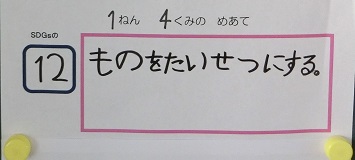 1ねん 4くみの めあて
SDGsの
12
ものをたいせつにする。